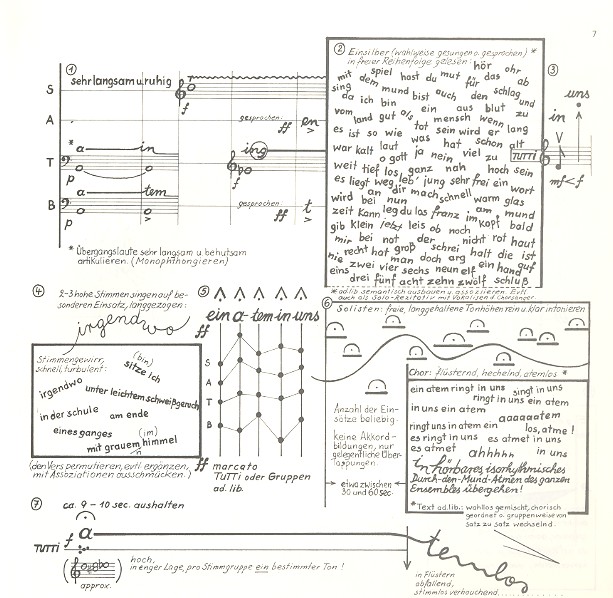 7
① sehr langsam u. ruhig
S
A
T
B
f
gesprochen: ff en
* a in
p
ing
f
a tem
p
gesprochen ff t
* Übergangslaute sehr langsam u. behutsam
artikulieren. (Monophthongieren)
② Einsilber (wahlweise gesungen o. gesprochen) *
in freier Reihenfolge gelesen:
hör ohr
mit spiel hast du mut für das ab
sing dem mund bist auch den schlag
da ich bin ein aus blut und
vom land gut als mensch wenn zu
es ist so wie tot sein wird er lang
war kalt laut was hat schon alt
o gott ja nein viel zu
weit tief los ganz nah hoch sein
es liegt weg leb' jung sehr frei ein wort
an dir mach schnell warm glas
wird bei nun im am mund
zeit kann leg du los franz kopf bald
gib klein jetzt leis ob noch
mir bei not der nicht rot haut
recht hat groß schrei halt die ist
nie man doch arg im ein guf
eins zwei vier sechs neun elf ein hand
drei fünf acht zehn zwölf schluß
* ad lib. semantisch ausbauen u. assoziieren. Evtl.
auch als Solo-Rezitativ mit Vokalisen d. Chorsänger.
③ uns
in
TUTTI
mf < f
④ 2-3 hohe Stimmen singen auf be-
sonderen Einsatz, langgezogen:
irgendwo
Stimmengewirr,
schnell, turbulent:
(bin)
sitze ich
irgendwo
unter leichtem schweißgeruch
in der schule am ende
eines ganges (im)
mit grauem himmel
n
(den Vers permutieren, evtl ergänzen,
mit Assoziationen ausschmücken.)
⑤
ff ein a-tem in uns
S
A
T
B
ff marcato
TUTTI oder Gruppen
ad. lib.
⑥ Solisten: freie, langgehaltene Tonhöhen rein u. klar intonieren
Anzahl der Ein-
sätze beliebig.
keine Akkord-
bildungen, nur
gelegentliche Über-
lappungen.
etwa zwischen
30 und 60 sec.
Chor: flüsternd, hechelnd, atemlos *
ein atem ringt in uns singt in uns
ringt in uns ein atem
in uns ein atem
aaaaaatem
ringt uns in atem ein los, atme!
es ringt in uns es atmet in uns
es atmet ahhhhh in uns
Unhörbares isorhythmisches
Durch-den-Mund-Atmen des ganzen
Ensembles übergehen!
* Text ad. lib.: wahllos gemischt, chorisch
geordnet o. gruppenweise von
Satz zu Satz wechselnd.
⑦ ca. 9 - 10 sec. aushalten
TUTTI f a temlos
approx.
hoch,
in enger Lage, pro Stimmgruppe ein bestimmter Ton!
in Flüstern
abfallend,
stimmlos verhauchend